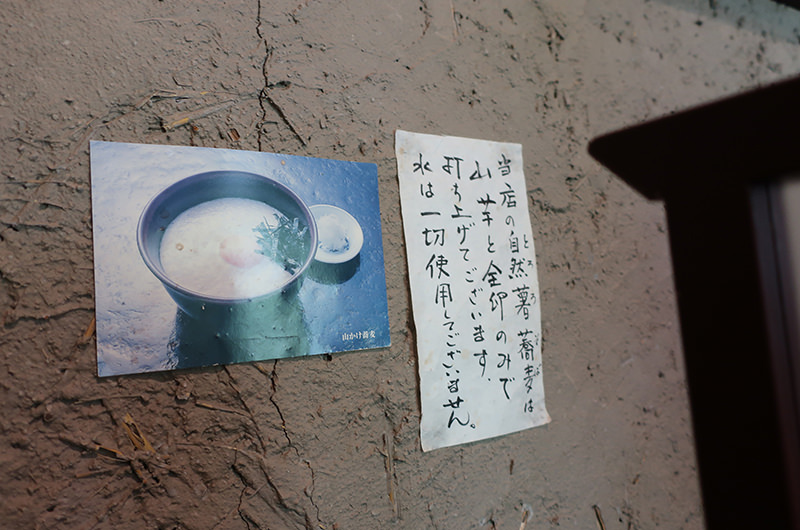 当店の自然薯蕎麦は
とろろ
そば
山芋と全卵のみで
打ち上げてございます。
水は一切使用してございません。
山かけ蕎麦